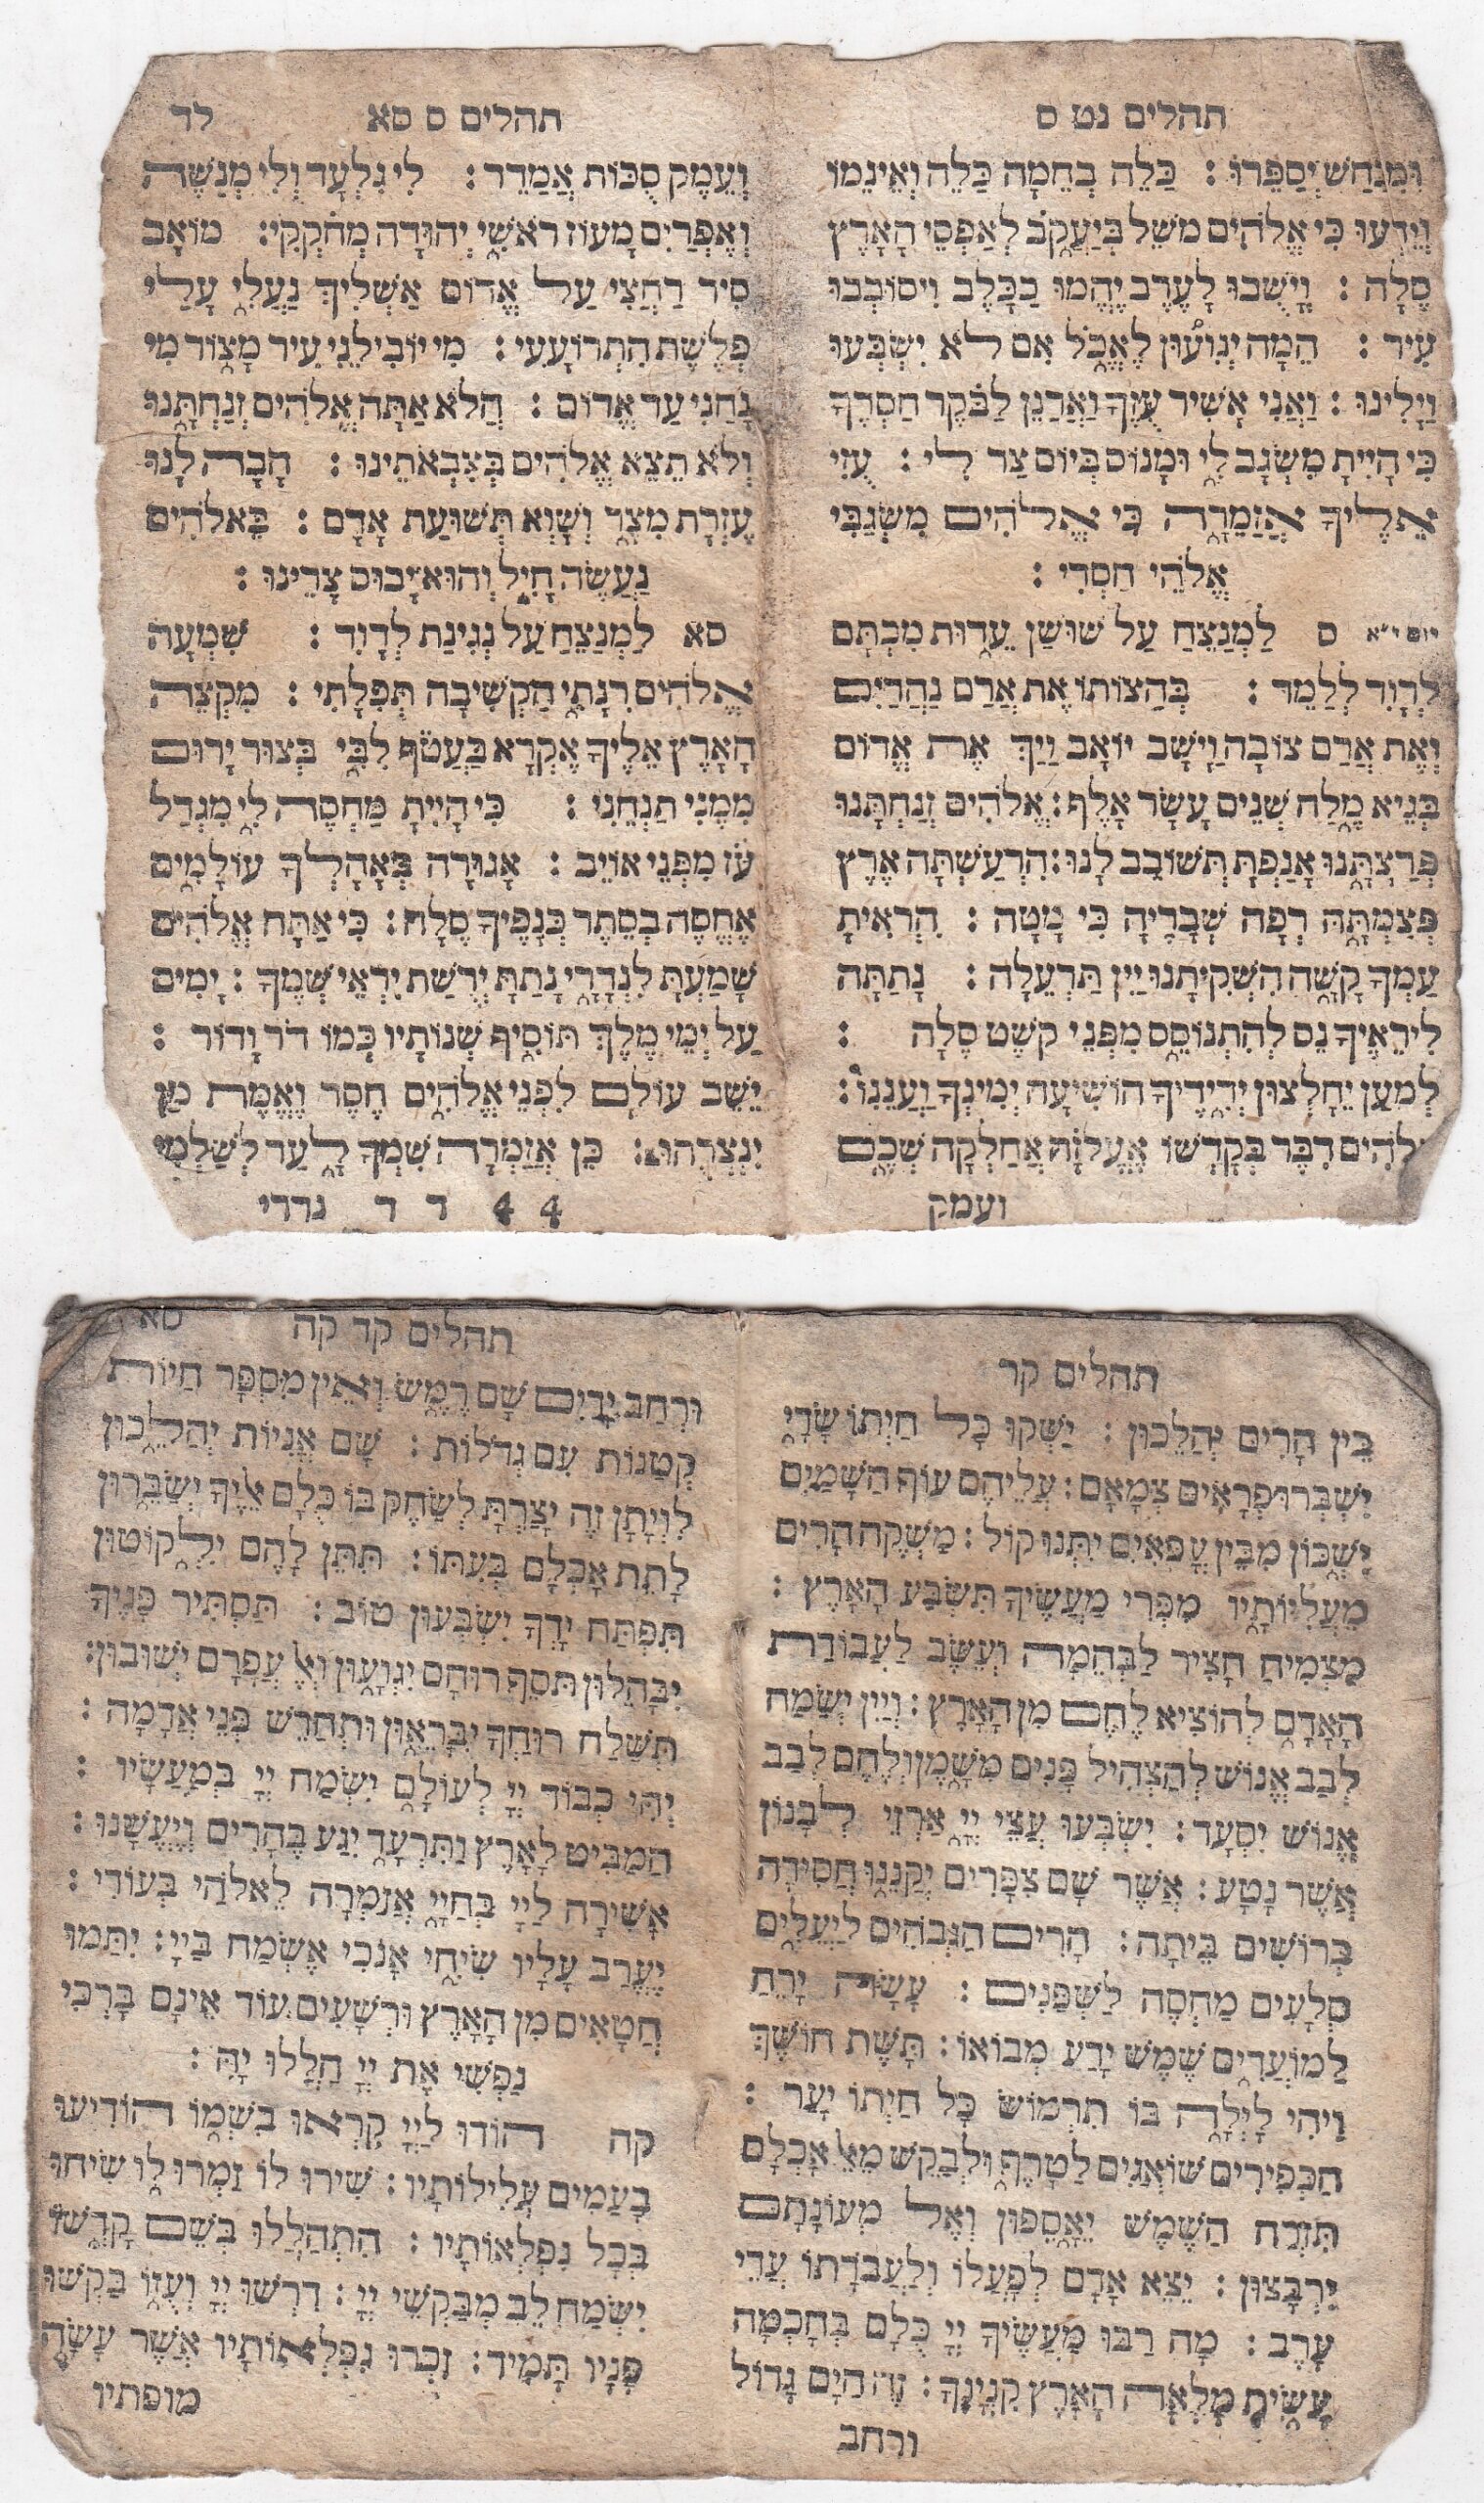 תהלים נט ס
וּמִנַּחַשׁ יְסַפֵּרוּ : כַּלֵּה בְחֵמָה כַּלֵּה וְאֵינֵמוֹ
וְיֵדְעוּ כִּי אֱלֹהִים מֹשֵׁל בְּיַעֲקֹב לְאַפְסֵי הָאָרֶץ
סֶלָה : וְיָשֻׁבוּ לָעֶרֶב יֶהֱמוּ כַכָּלֶב וִיסוֹבְבוּ
עִיר : הֵמָּה יְנִועוּן לֶאֱכֹל אִם לֹא יִשְׂבְּעוּ
וַיָּלִינוּ : וַאֲנִי אָשִׁיר עֻזֶּךָ וַאֲרַנֵּן לַבֹּקֶר חַסְדֶּךָ
כִּי הָיִיתָ מִשְׂגָּב לִי וּמָנוֹס בְּיוֹם צַר לִי : עֻזִּי
אֵלֶיךָ אֲזַמֵּרָה כִּי אֱלֹהִים מִשְׂגַּבִּי
אֱלֹהֵי חַסְדִּי :
יום י״א ס לַמְנַצֵּחַ עַל שׁוּשַׁן עֵדוּת מִכְתָּם
לְדָוִד לְלַמֵּד : בְּהַצּוֹתוֹ אֶת אֲרַם נַהֲרַיִם
וְאֶת אֲרַם צוֹבָה וַיָּשָׁב יוֹאָב וַיַּךְ אֶת אֱדוֹם
בְּגֵיא מֶלַח שְׁנֵים עָשָׂר אָלֶף : אֱלֹהִים זְנַחְתָּנוּ
פְרַצְתָּנוּ אָנַפְתָּ תְּשׁוֹבֵב לָנוּ : הִרְעַשְׁתָּה אֶרֶץ
פְּצַמְתָּהּ רְפָה שְׁבָרֶיהָ כִּי מָטָה : הִרְאִיתָ
עַמְּךָ קָשָׁה הִשְׁקִיתָנוּ יַיִן תַּרְעֵלָה : נָתַתָּה
לִירֵאֶיךָ נֵּס לְהִתְנוֹסֵס מִפְּנֵי קֹשֶׁט סֶלָה :
לְמַעַן יֵחָלְצוּן יְדִידֶיךָ הוֹשִׁיעָה יְמִינְךָ וַעֲנֵנוּ :
אֱלֹהִים דִּבֶּר בְּקָדְשׁוֹ אֶעֱלֹזָה אֲחַלְּקָה שְׁכֶם
ועמק
תהלים ס סא לד
וְעֵמֶק סֻכּוֹת אֲמַדֵּד : לִי גִלְעָד וְלִי מְנַשֶּׁה
וְאֶפְרַיִם מָעוֹז רֹאשִׁי יְהוּדָה מְחֹקְקִי : מוֹאָב
סִיר רַחְצִי עַל אֱדוֹם אַשְׁלִיךְ נַעֲלִי עָלַי
פְּלֶשֶׁת הִתְרוֹעָעִי : מִי יוֹבִילֵנִי עִיר מָצוֹר מִי
נָחַנִי עַד אֱדוֹם : הֲלֹא אַתָּה אֱלֹהִים זְנַחְתָּנוּ
וְלֹא תֵצֵא אֱלֹהִים בְּצִבְאֹתֵינוּ : הָבָה לָּנוּ
עֶזְרָת מִצָּר וְשָׁוְא תְּשׁוּעַת אָדָם : בֵּאלֹהִים
נַעֲשֶׂה חָיִל וְהוּא יָבוּס צָרֵינוּ :
סא לַמְנַצֵּחַ עַל נְגִינַת לְדָוִד : שִׁמְעָה
אֱלֹהִים רִנָּתִי הַקְשִׁיבָה תְּפִלָּתִי : מִקְצֵה
הָאָרֶץ אֵלֶיךָ אֶקְרָא בַּעֲטֹף לִבִּי בְּצוּר יָרוּם
מִמֶּנִּי תַנְחֵנִי : כִּי הָיִיתָ מַחְסֶה לִי מִגְדַּל
עֹז מִפְּנֵי אוֹיֵב : אָגוּרָה בְאָהָלְךָ עוֹלָמִים
אֶחֱסֶה בְסֵתֶר כְּנָפֶיךָ סֶלָה : כִּי אַתָּה אֱלֹהִים
שָׁמַעְתָּ לִנְדָרָי נָתַתָּ יְרֻשַּׁת יִרְאֵי שְׁמֶךָ : יָמִים
עַל יְמֵי מֶלֶךְ תּוֹסִיף שְׁנוֹתָיו כְּמוֹ דֹר וָדוֹר :
יֵשֵׁב עוֹלָם לִפְנֵי אֱלֹהִים חֶסֶד וֶאֱמֶת מַן
יִנְצְרֻהוּ : כֵּן אֲזַמְּרָה שִׁמְךָ לָעַד לְשַׁלְּמִי
4 4 ד ד נדרי
תהלים קד
בֵּין הָרִים יְהַלֵּכוּן : יַשְׁקוּ כָּל חַיְתוֹ שָׂדָי
יִשְׁבְּרוּ פְרָאִים צְמָאָם : עֲלֵיהֶם עוֹף הַשָּׁמַיִם
יִשְׁכּוֹן מִבֵּין עֳפָאיִם יִתְּנוּ קוֹל : מַשְׁקֶה הָרִים
מֵעֲלִיּוֹתָיו מִפְּרִי מַעֲשֶׂיךָ תִּשְׂבַּע הָאָרֶץ :
מַצְמִיחַ חָצִיר לַבְּהֵמָה וְעֵשֶׂב לַעֲבוֹדַת
הָאָדָם לְהוֹצִיא לֶחֶם מִן הָאָרֶץ : וְיַיִן יְשַׂמַּח
לְבַב אֱנוֹשׁ לְהַצְהִיל פָּנִים מִשָּׁמֶן וְלֶחֶם לְבַב
אֱנוֹשׁ יִסְעָד : יִשְׂבְּעוּ עֲצֵי יְיָ אַרְזֵי לְבָנוֹן
אֲשֶׁר נָטָע : אֲשֶׁר שָׁם צִפֳּרִים יְקַנֵּנוּ חֲסִידָה
בְּרוֹשִׁים בֵּיתָהּ : הָרִים הַגְּבֹהִים לַיְּעֵלִים
סְלָעִים מַחְסֶה לַשְׁפַנִּים : עָשָׂה יָרֵחַ
לְמוֹעֲדִים שֶׁמֶשׁ יָדַע מְבוֹאוֹ : תָּשֶׁת חוֹשֶׁךְ
וִיהִי לָיְלָה בּוֹ תִרְמוֹשׂ כָּל חַיְתוֹ יָעַר :
הַכְּפִירִים שׁוֹאֲגִים לַטָּרֶף וּלְבַקֵּשׁ מֵאֵל אָכְלָם
תִּזְרַח הַשֶּׁמֶשׁ יֵאָסֵפוּן וְאֶל מְעוֹנֹתָם
יִרְבָּצוּן : יֵצֵא אָדָם לְפָעֳלוֹ וְלַעֲבֹדָתוֹ עֲדֵי
עָרֶב : מָה רַבּוּ מַעֲשֶׂיךָ יְיָ כֻּלָּם בְּחָכְמָה
עָשִׂיתָ מָלְאָה הָאָרֶץ קִנְיָנֶךָ : זֶה הַיָּם גָּדוֹל
ורחב
תהלים קד קה סא
וּרְחַב יָדָיִם שָׁם רֶמֶשׂ וְאֵין מִסְפָּר חַיּוֹת
קְטַנּוֹת עִם גְּדֹלוֹת : שָׁם אֳנִיּוֹת יְהַלֵּכוּן
לִוְיָתָן זֶה יָצַרְתָּ לְשַׂחֶק בּוֹ כֻּלָּם אֵלֶיךָ יְשַׂבֵּרוּן
לָתֵת אָכְלָם בְּעִתּוֹ : תִּתֵּן לָהֶם יִלְקוֹטוּן
תִּפְתַּח יָדְךָ יִשְׂבְּעוּן טוֹב : תַּסְתִּיר פָּנֶיךָ
יִבָּהֵלוּן תֹּסֵף רוּחָם יִגְוָעוּן וְאֶל עֲפָרָם יְשׁוּבוּן :
תְּשַׁלַּח רוּחֲךָ יִבָּרֵאוּן וּתְחַדֵּשׁ פְּנֵי אֲדָמָה :
יְהִי כְבוֹד יְיָ לְעוֹלָם יִשְׂמַח יְיָ בְּמַעֲשָׂיו :
הַמַּבִּיט לָאָרֶץ וַתִּרְעָד יִגַּע בֶּהָרִים וְיֶעֱשָׁנוּ :
אָשִׁירָה לַיְיָ בְּחַיָּי אֲזַמְּרָה לֵאלֹהַי בְּעוֹדִי :
יֶעֱרַב עָלָיו שִׂיחִי אָנֹכִי אֶשְׂמַח בַּיְיָ : יִתַּמּוּ
חַטָּאִים מִן הָאָרֶץ וּרְשָׁעִים עוֹד אֵינָם בָּרְכִי
נַפְשִׁי אֶת יְיָ הַלְלוּ יָהּ :
קה הוֹדוּ לַיְיָ קִרְאוּ בִשְׁמוֹ הוֹדִיעוּ
בָעַמִּים עֲלִילוֹתָיו : שִׁירוּ לוֹ זַמְּרוּ לוֹ שִׂיחוּ
בְּכָל נִפְלְאוֹתָיו : הִתְהַלְלוּ בְּשֵׁם קָדְשׁוֹ
יִשְׂמַח לֵב מְבַקְשֵׁי יְיָ : דִּרְשׁוּ יְיָ וְעֻזּוֹ בַּקְּשׁוּ
פָנָיו תָּמִיד : זִכְרוּ נִפְלְאוֹתָיו אֲשֶׁר עָשָׂה
מופתיו